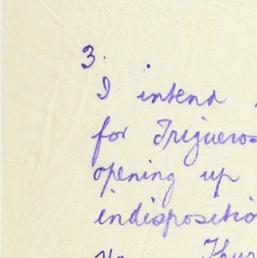 3.
I intend
for Trigueros
opening up
indispositio
Thur